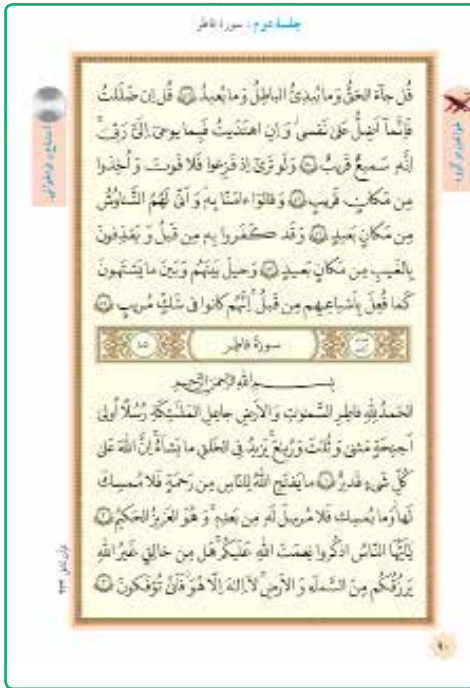 جلسهٔ دوم : سورهٔ فاطر
قُل جاءَ الحَقُّ وَ ما يُبدِئُ الباطِلُ وَ ما يُعيدُ ۴۹ قُل إِن ضَلَلتُ
فَإِنَّما أَضِلُّ عَلىٰ نَفسى وَ إِنِ اهتَدَيتُ فَبِما يوحى إِلَىَّ رَبّى
إِنَّهُ سَميعٌ قَريبٌ ۵۰ وَ لَو تَرىٰ إِذ فَزِعوا فَلا فَوتَ وَ أُخِذوا
مِن مَكانٍ قَريبٍ ۵۱ وَ قالوا ءامَنّا بِهِ وَ أَنّىٰ لَهُمُ التَّناوُشُ
مِن مَكانٍ بَعيدٍ ۵۲ وَ قَد كَفَروا بِهِ مِن قَبلُ وَ يَقذِفونَ
بِالغَيبِ مِن مَكانٍ بَعيدٍ ۵۳ وَ حيلَ بَينَهُم وَ بَينَ ما يَشتَهونَ
كَما فُعِلَ بِأَشياعِهِم مِن قَبلُ إِنَّهُم كانوا فى شَكٍّ مُريبٍ ۵۴
سورة فاطر
بِسمِ اللهِ الرَّحمٰنِ الرَّحيمِ
الحَمدُ لِلّٰهِ فاطِرِ السَّمٰوٰتِ وَ الأَرضِ جاعِلِ المَلٰئِكَةِ رُسُلًا أُولى
أَجنِحَةٍ مَثنىٰ وَ ثُلٰثَ وَ رُبٰعَ يَزيدُ فِى الخَلقِ ما يَشاءُ إِنَّ اللهَ عَلىٰ
كُلِّ شَىءٍ قَديرٌ ۱ ما يَفتَحِ اللهُ لِلنّاسِ مِن رَحمَةٍ فَلا مُمسِكَ
لَها وَ ما يُمسِك فَلا مُرسِلَ لَهُ مِن بَعدِهِ وَ هُوَ العَزيزُ الحَكيمُ ۲
يٰأَيُّهَا النّاسُ اذكُروا نِعمَتَ اللهِ عَلَيكُم هَل مِن خالِقٍ غَيرُ اللهِ
يَرزُقُكُم مِنَ السَّماءِ وَ الأَرضِ لا إِلٰهَ إِلّا هُوَ فَأَنّىٰ تُؤفَكونَ ۳
۹۰